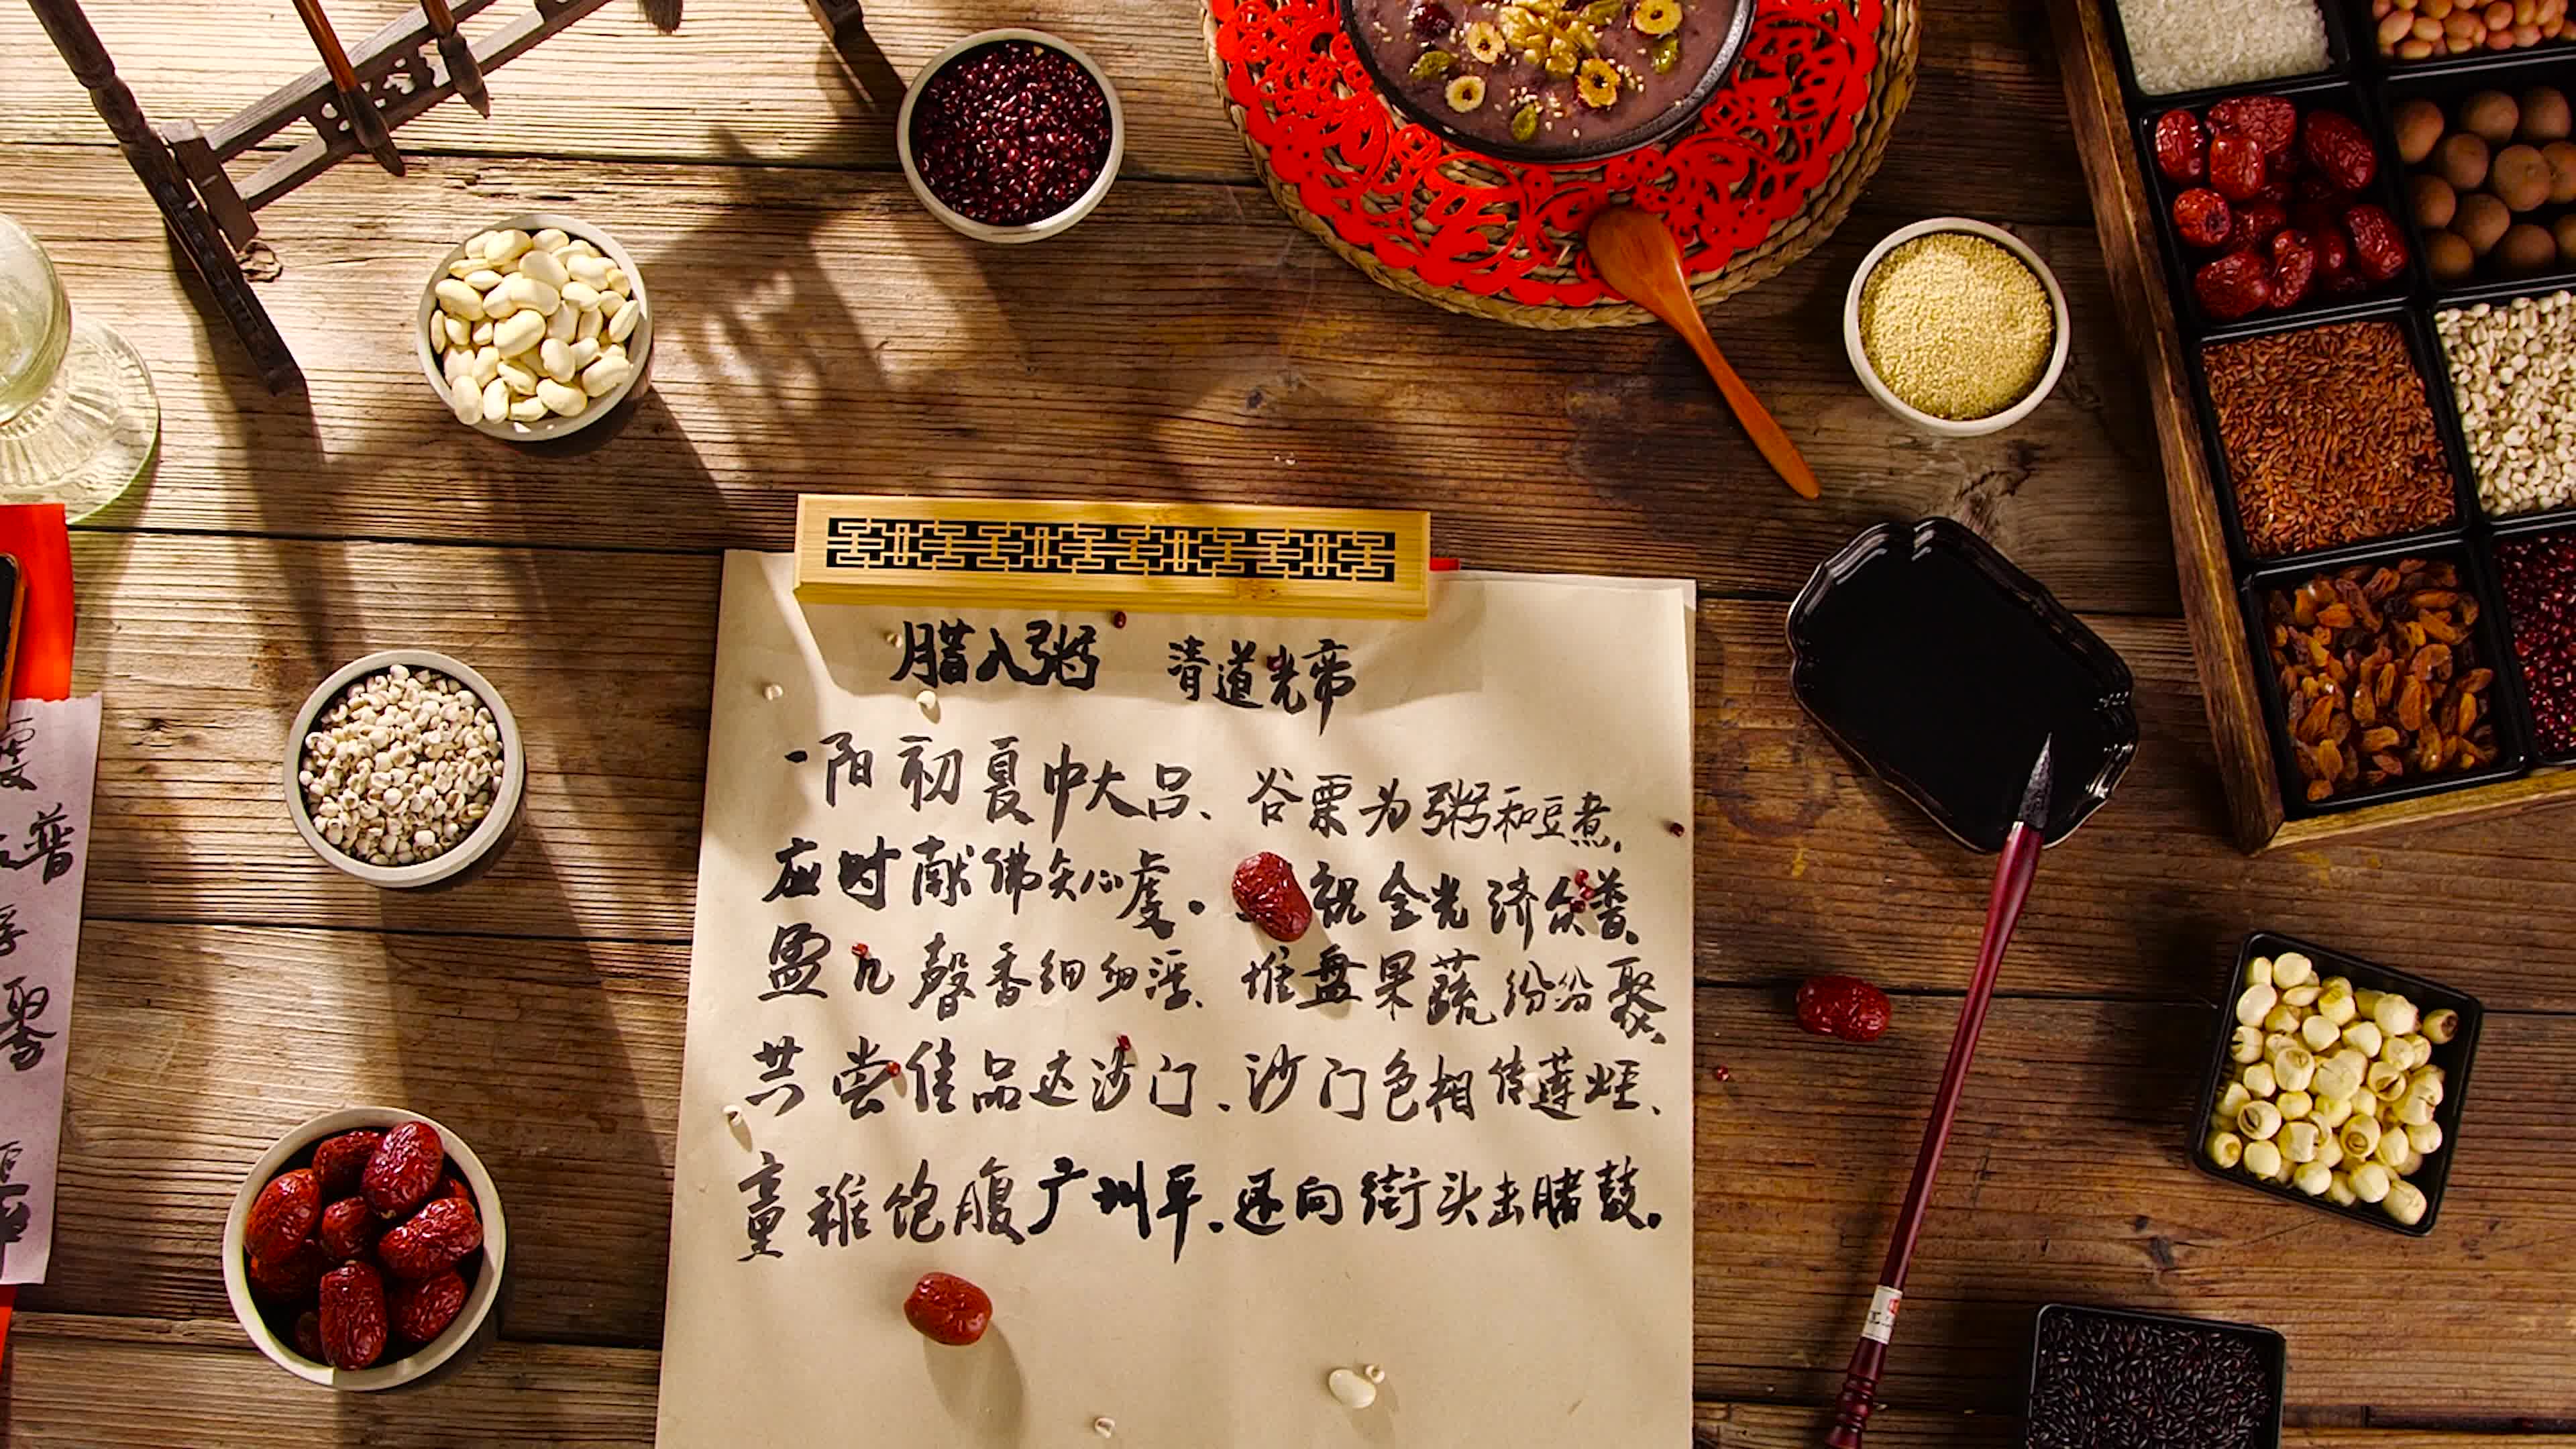 腊八粥 清道光帝
一阳初夏中大吕、谷粟为粥和豆煮.
应时献佛矢心虔。祝金光济众普.
盈几馨香细细浮、堆盘果蔬纷纷聚.
共尝佳品达沙门、沙门色相传莲炬、
童稚饱腹广州平.还向街头击腊鼓.
虔
普
聚